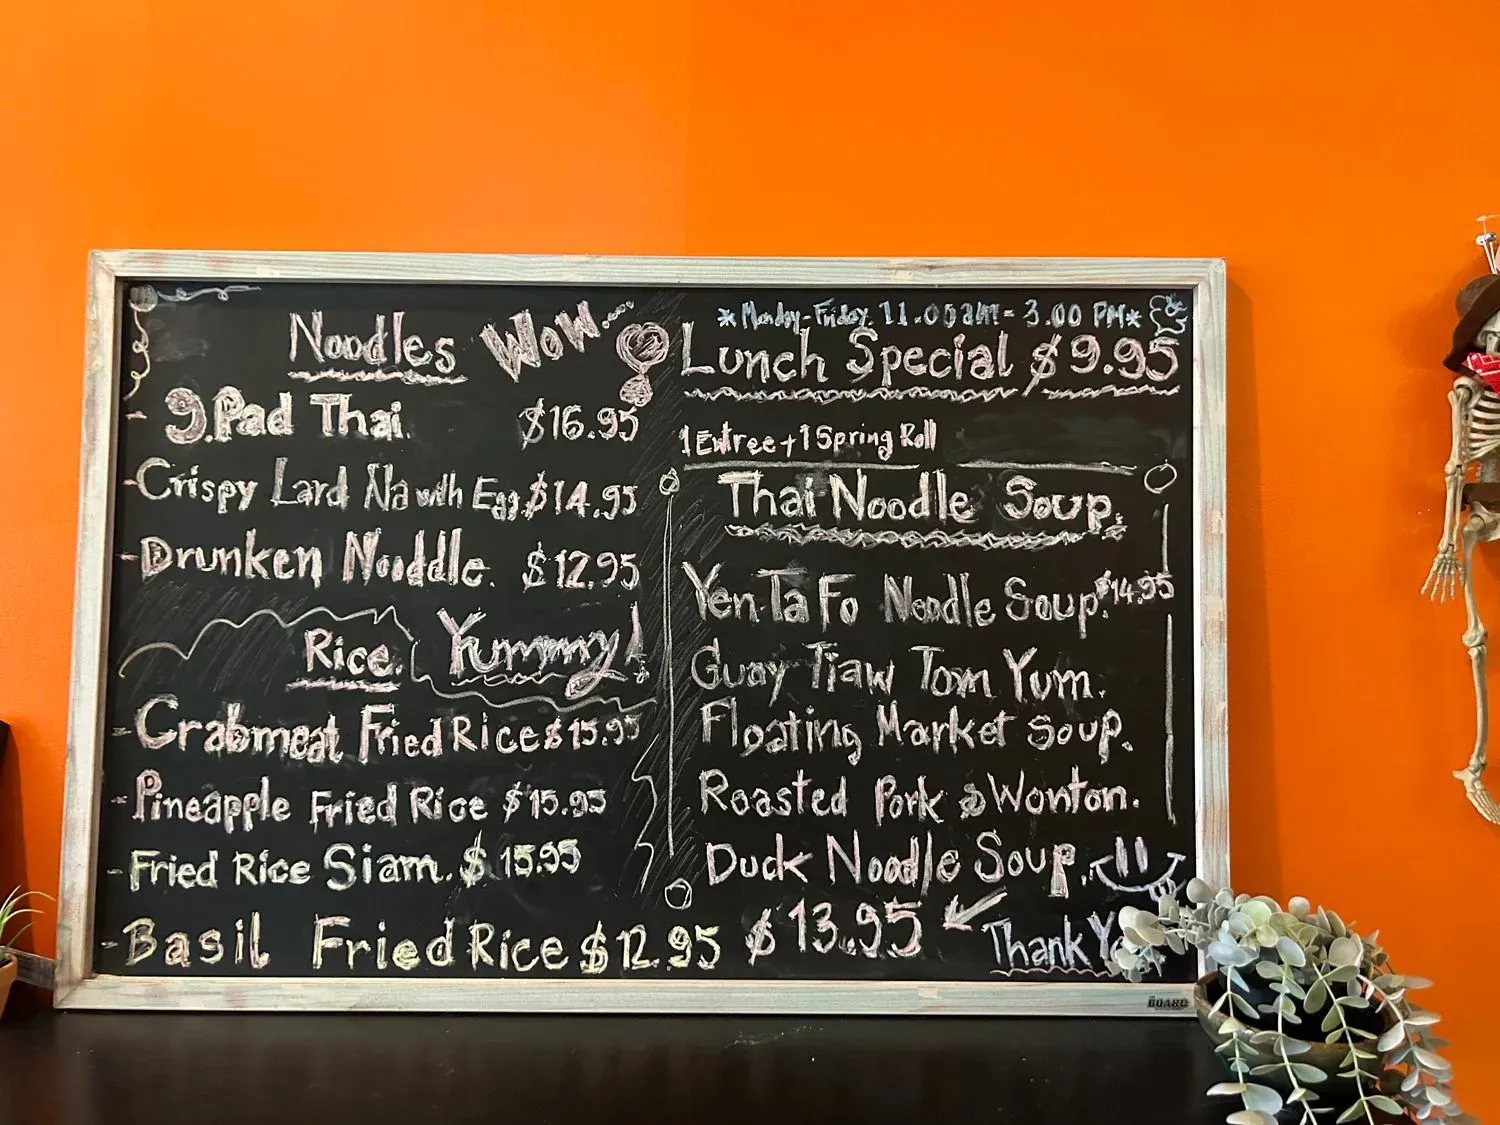 Noodles WOW....
9.Pad Thai. $16.95
-Crispy Lard Na with Egg $14.95
-Drunken Nooddle. $12.95
Rice. Yummy!
-Crabmeat Fried Rice $15.95
-Pineapple Fried Rice $15.95
-Fried Rice Siam. $15.95
-Basil Fried Rice $12.95
*Monday-Friday. 11.00am-3.00 PM*
Lunch Special $9.95
1Entree+1Spring Roll
Thai Noodle Soup.
Yen Ta Fo Noodle Soup. $14.95
Guay Tiaw Tom Yum.
Floating Market Soup.
Roasted Pork & Wonton.
Duck Noodle Soup.
$13.95
Thank Yo
BOARD